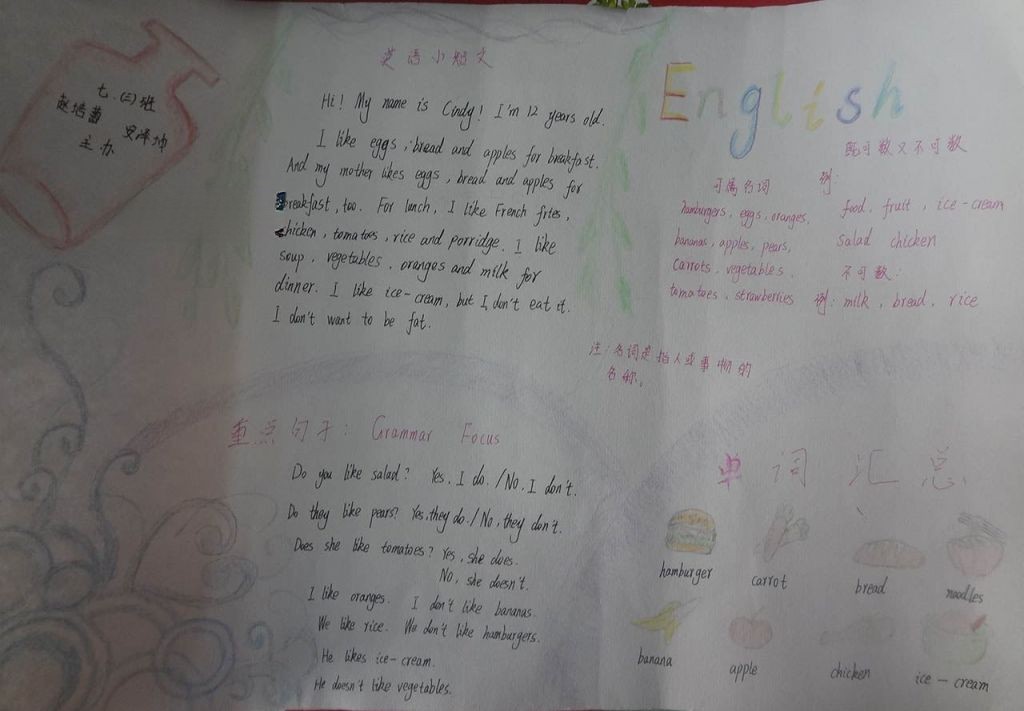 七.(三)班
赵培茜
安泽坤
主办
英语小短文
Hi! My name is Cindy! I'm 12 years old.
I like eggs, bread and apples for breakfast.
And my mother likes eggs, bread and apples for
breakfast, too. For lunch, I like French fries,
chicken, tomatoes, rice and porridge. I like
soup, vegetables, oranges and milk for
dinner. I like ice-cream, but I don't eat it.
I don't want to be fat.
English
可属名词
hamburgers, eggs, oranges,
bananas, apples, pears,
carrots, vegetables.
tomatoes, strawberries
既可数又不可数
例:
food, fruit, ice-cream
salad chicken
不可数:
例: milk, bread, rice
注:名词是指人或事物的
名称。
重点句子: Grammar Focus
Do you like salad? Yes, I do. /No, I don't.
Do they like pears? Yes, they do. / No, they don't.
Does she like tomatoes? Yes, she does.
No, she doesn't.
I like oranges. I don't like bananas.
We like rice. We don't like hamburgers.
He likes ice-cream.
He doesn't like vegetables.
单词汇总
hamburger carrot bread noodles
banana apple chicken ice-cream